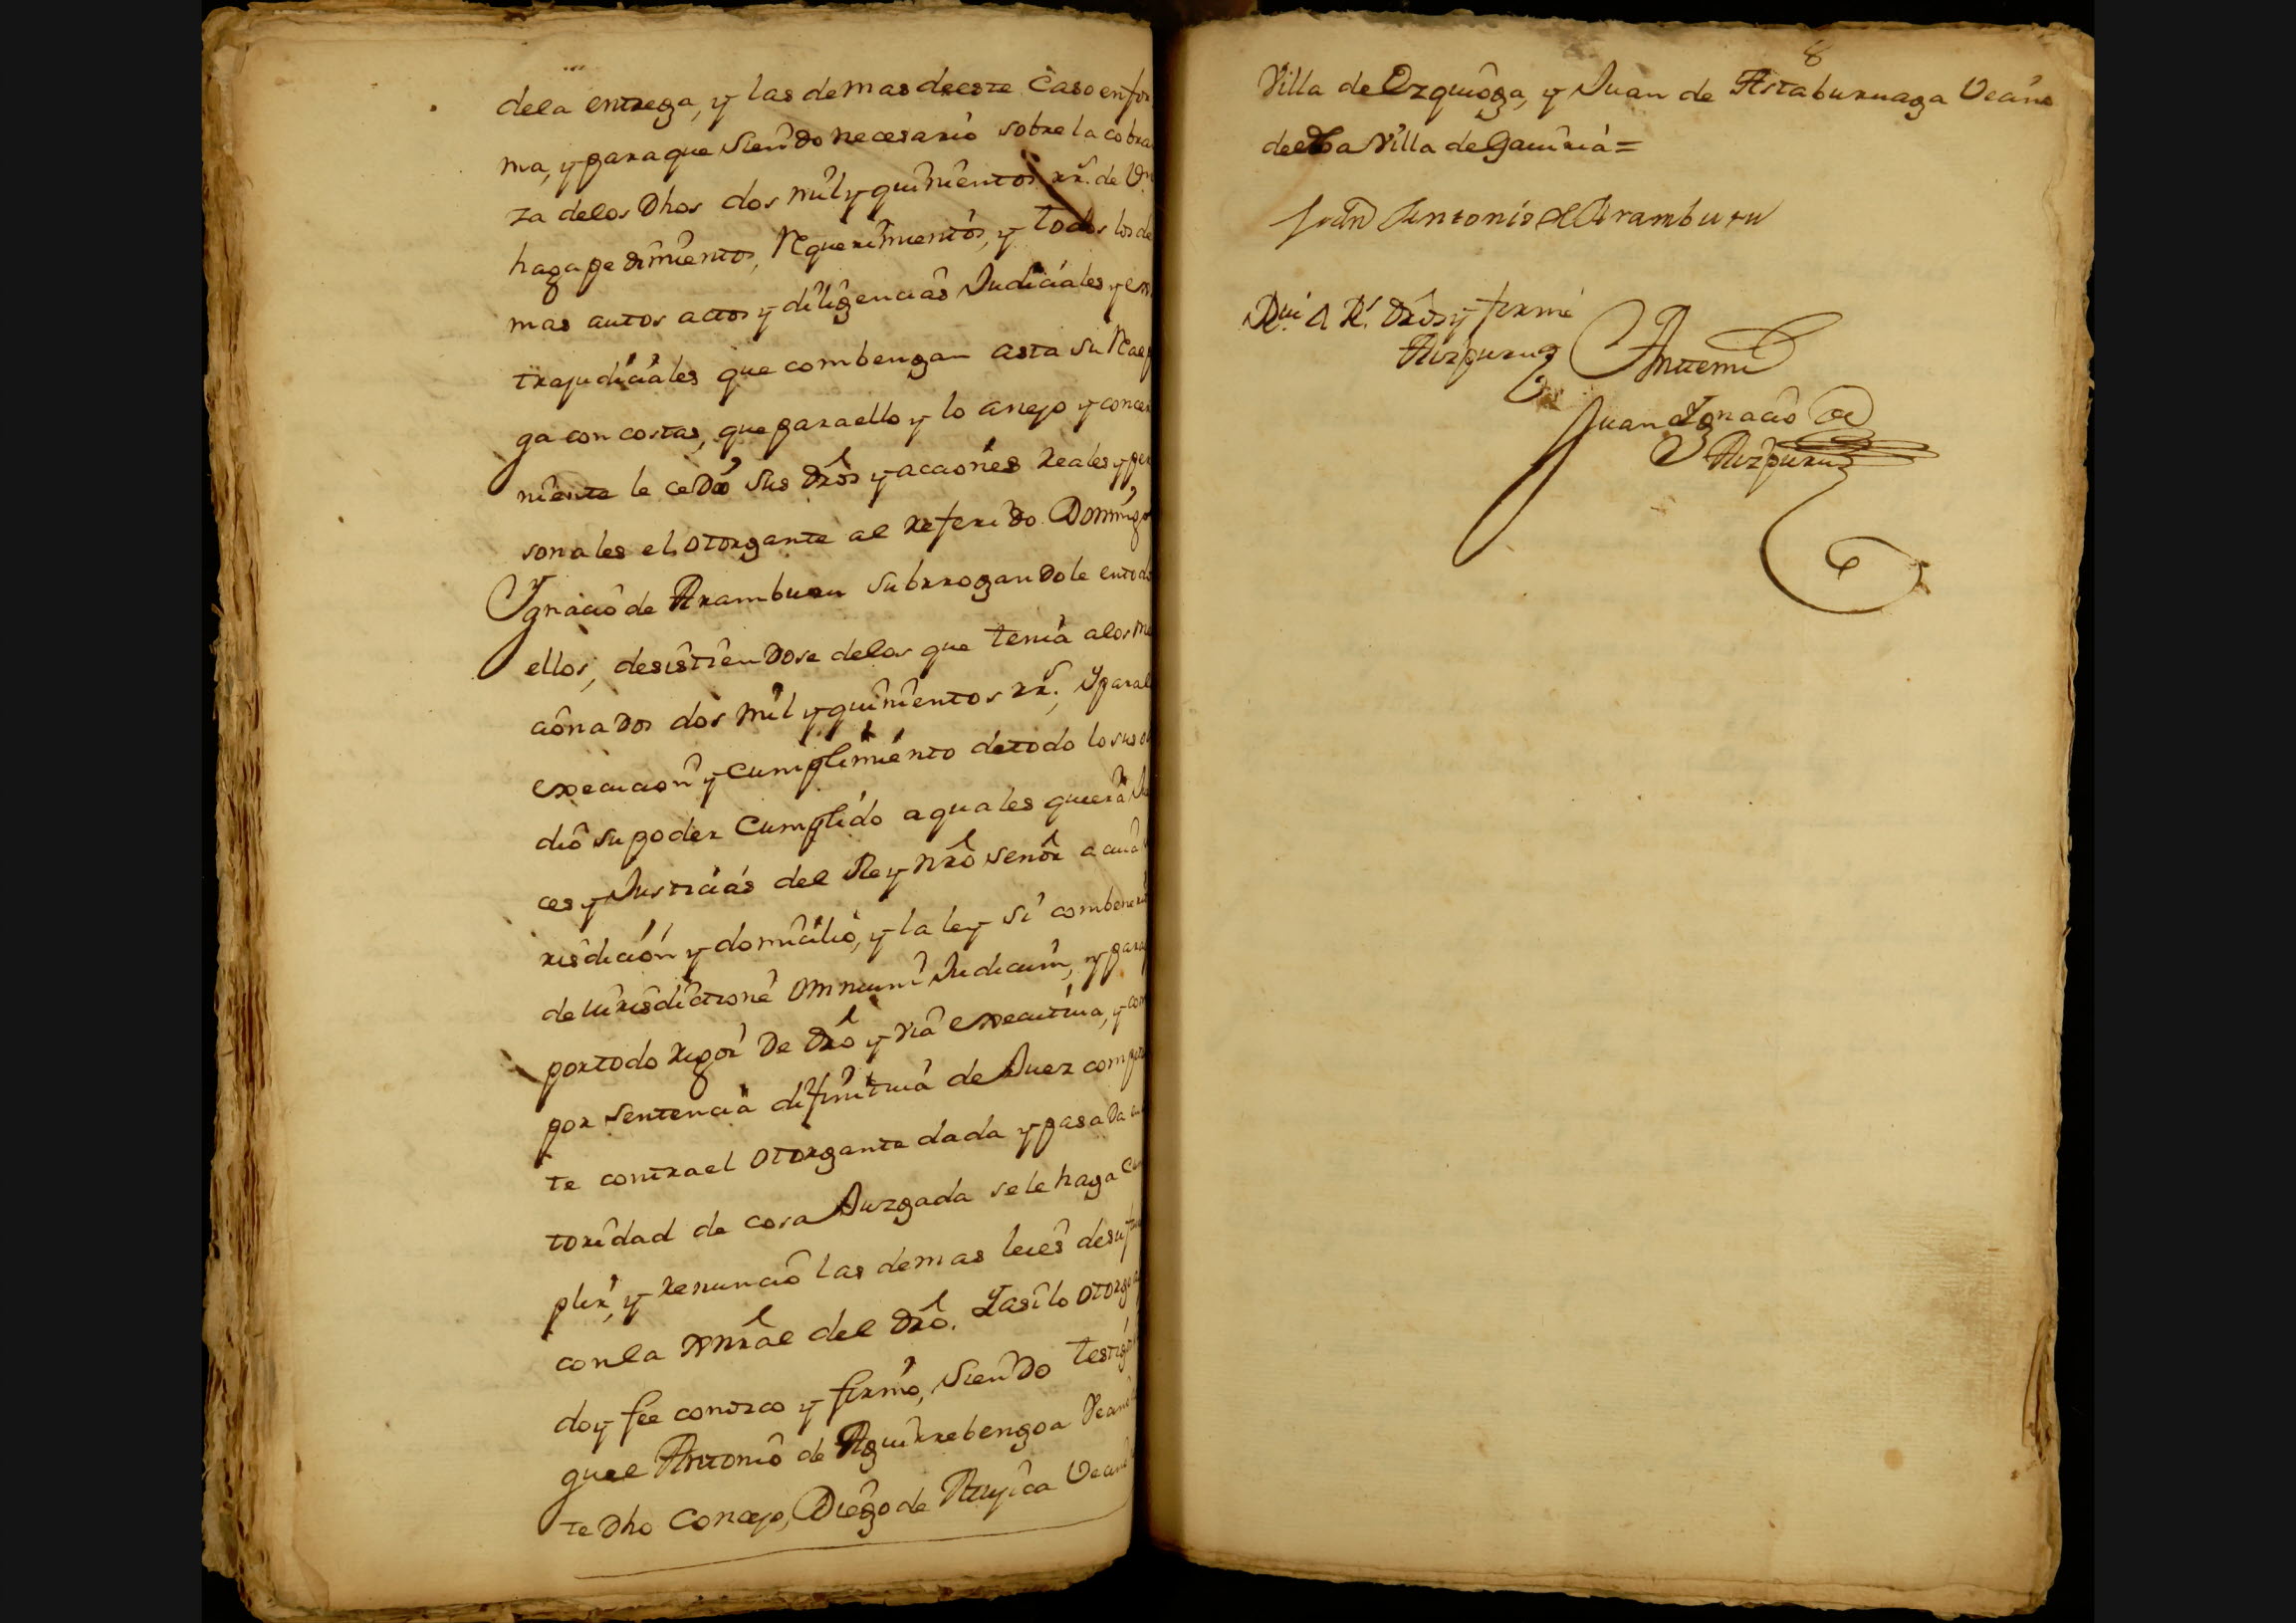 dela entrega, y las demas deeste Caso enfor
ma, y paraque siendo necesario sobre la cobra
za delos Dhos dos mil y quinientos rr.s de Vn
haga pedimientos, Requerimientos, y todos los de
mas autos actos y diligencias Judiciales y ex
trajudiciales que combengan asta su Rea
ga con costas, que para ello y lo anejo y concer
niente le cedio sus dros y acciones reales y per
sonales el otorgante al referido Domingo
Ignacio de Aramburu subrrogandole en todo
ellos, desistiendose delos que tenia alos me
cionados dos mil y quinientos rr.s, y paral
execucion y cumplimiento detodo lo suso
dio su poder Cumplido a quales quiera Jue
ces y Justicias del Rey nro señor a cuia
risdicion y domicilio, y la ley si combenerit
de iurisdictione omnium Judicum, y para
portodo rigor de dro y via executiva, y com
por sentencia difinitiva de Juez compe
te contra el otorgante dada y pasada
toridad de cosa Juzgada se le haga Cum
plir, y renuncio las demas leies desu
conla gnral del dro. Y asi lo otorgo
doy fee conozco y firmo, siendo testigos
guel Antonio de Aguirrebengoa Vecino
te dho Concejo, Diego de Vecino
8
Villa de Ezquioga, y Juan de Astaburuaga Vecino
de esta Villa de Gauiria=
Juan Antonio de Aramburu
R.vi A R.s dros y firme
Aizpuru
Antemi
Juan Ignacio de
Aizpuru